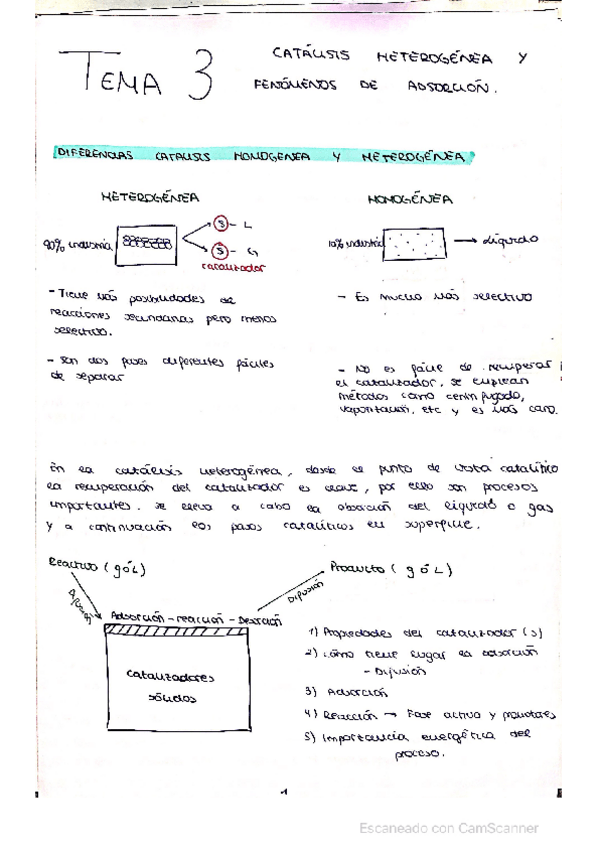 TEMA 3
CATÁLISIS HETEROGÉNEA Y
FENÓMENOS DE ADSORCIÓN.
DIFERENCIAS CATALISIS HOMOGENEA Y HETEROGÉNEA
HETEROGÉNEA
90% industria
S - L
S - G
catalizador
- Tiene más posibilidades de
reacciones secundarias pero menos
selectivo.
- Son dos fases diferentes fáciles
de separar
HOMOGÉNEA
10% industria
líquido
- Es mucho más selectivo
- No es fácil de recuperar
el catalizador, se emplean
métodos como centrifugado,
vaporitación, etc y es más caro.
En la catálisis heterogénea, desde el punto de vista catalítico
la recuperación del catalizador es clave, por ello son procesos
importantes. se lleva a cabo la absorción del líquido o gas
y a continuación los pasos catalíticos en superficie.
Reactivo (g ó L)
Difusión
Adsorción - reacción - Desorción
Catalizadores
sólidos
Difusión
Producto (g ó L)
1) Propiedades del catalizador (s)
2) cómo tiene lugar la adsorción
- Difusión
3) Adsorción
4) Reacción → Fase activa y promotores
5) Importancia energética del
proceso.
1
Escaneado con CamScanner